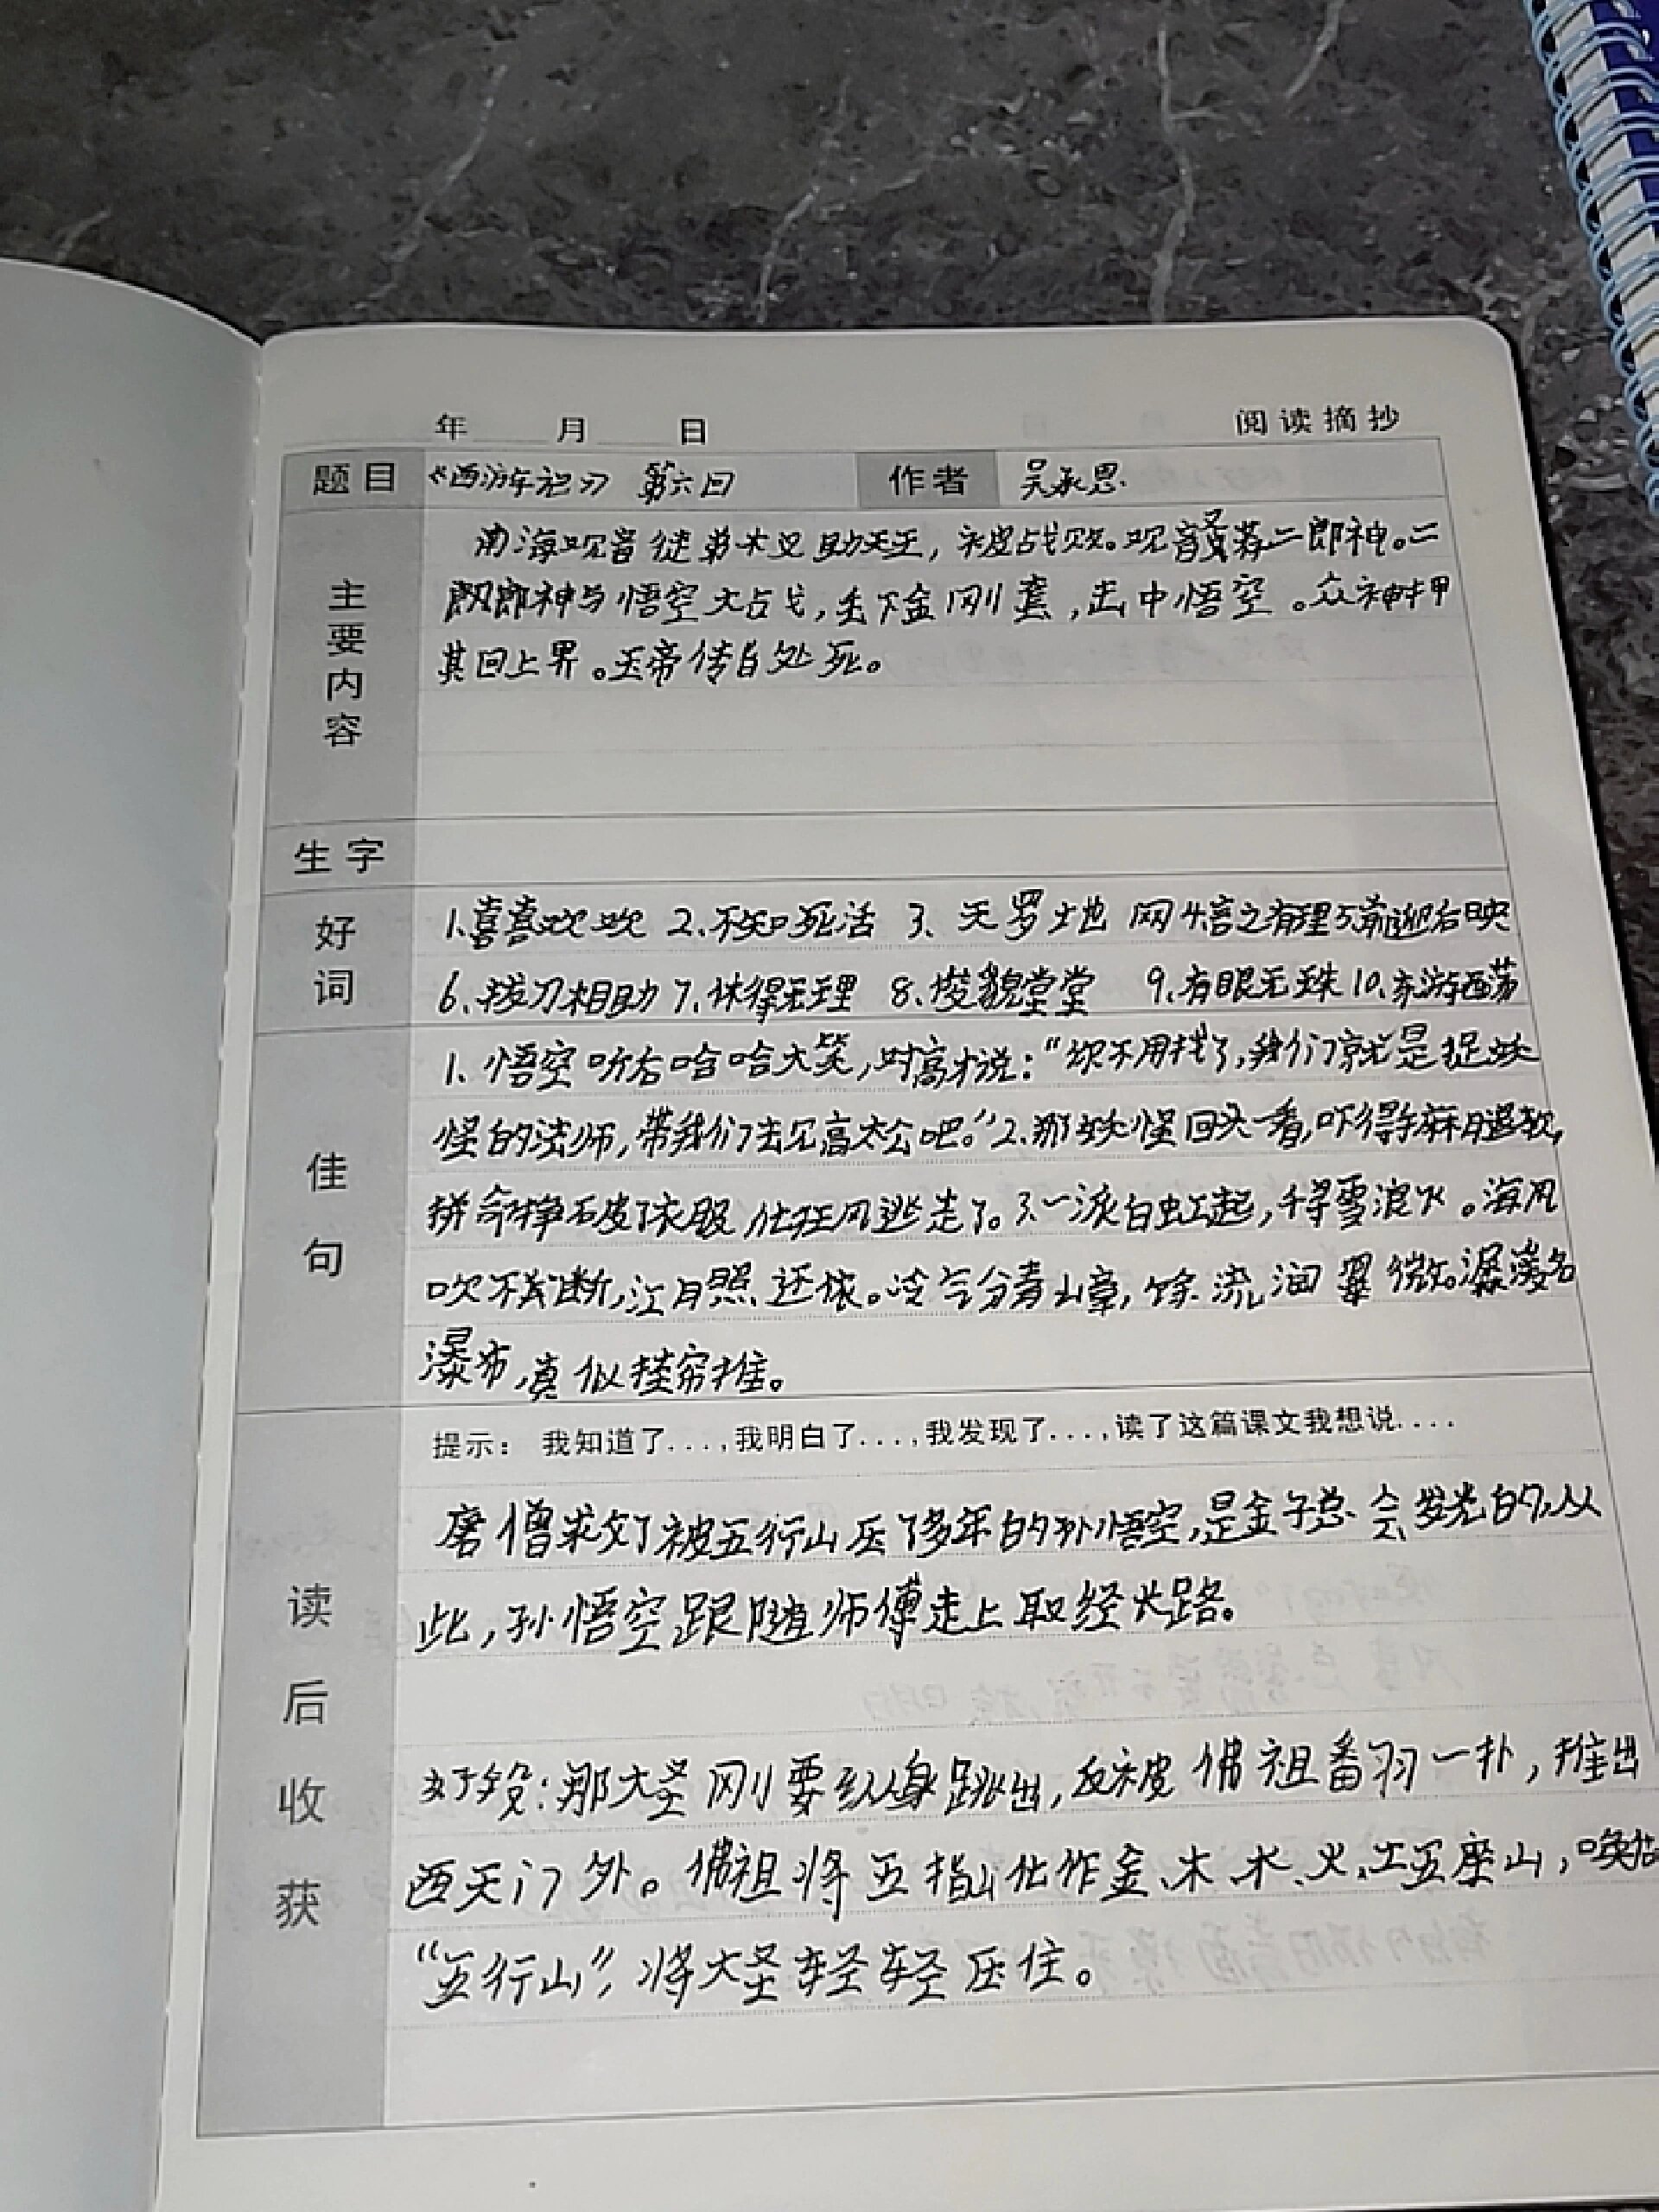 年 月 日 阅读摘抄
题目 《西游记》 第六回 作者 吴承恩
主要内容
南海观音徒弟木叉助天王,被战败。观音荐二郎神。二
郎神与悟空大占戈,丢下金刚套,击中悟空。众神押
其回上界。玉帝传旨处死。
生字
好词
1、喜喜欢欢 2、不知死活 3、天罗地网 4、言之有理 5、前迎后映
6、拔刀相助 7、休得无理 8、俊貌堂堂 9、有眼无珠 10、东游西荡
佳句
1、悟空听后哈哈大笑,对高才说:“你不用找了,我们就是捉妖
怪的法师,带我们去见高太公吧。”2、那妖怪回头一看,吓得手麻脚软,
拼命挣破了衣服,化狂风逃走了。3、一派白虹起,千寻雪浪飞。海风
吹不断,江月照还依。冷气分青嶂,馀流润翠微。潺湲名
瀑布,真似挂帘帷。
提示: 我知道了....,我明白了....,我发现了....,读了这篇课文我想说....
读后收获
唐僧求灯被五行山压了多年的孙悟空,是金子总会发光的,从
此,孙悟空跟随师傅走上取经长路。
好段:那大圣刚要纵身跳出,反被佛祖翻一扑,推出
西天门外。佛祖将五指化作金、木、水、火、土五座山,唤
“五行山”,将大圣轻轻压住。